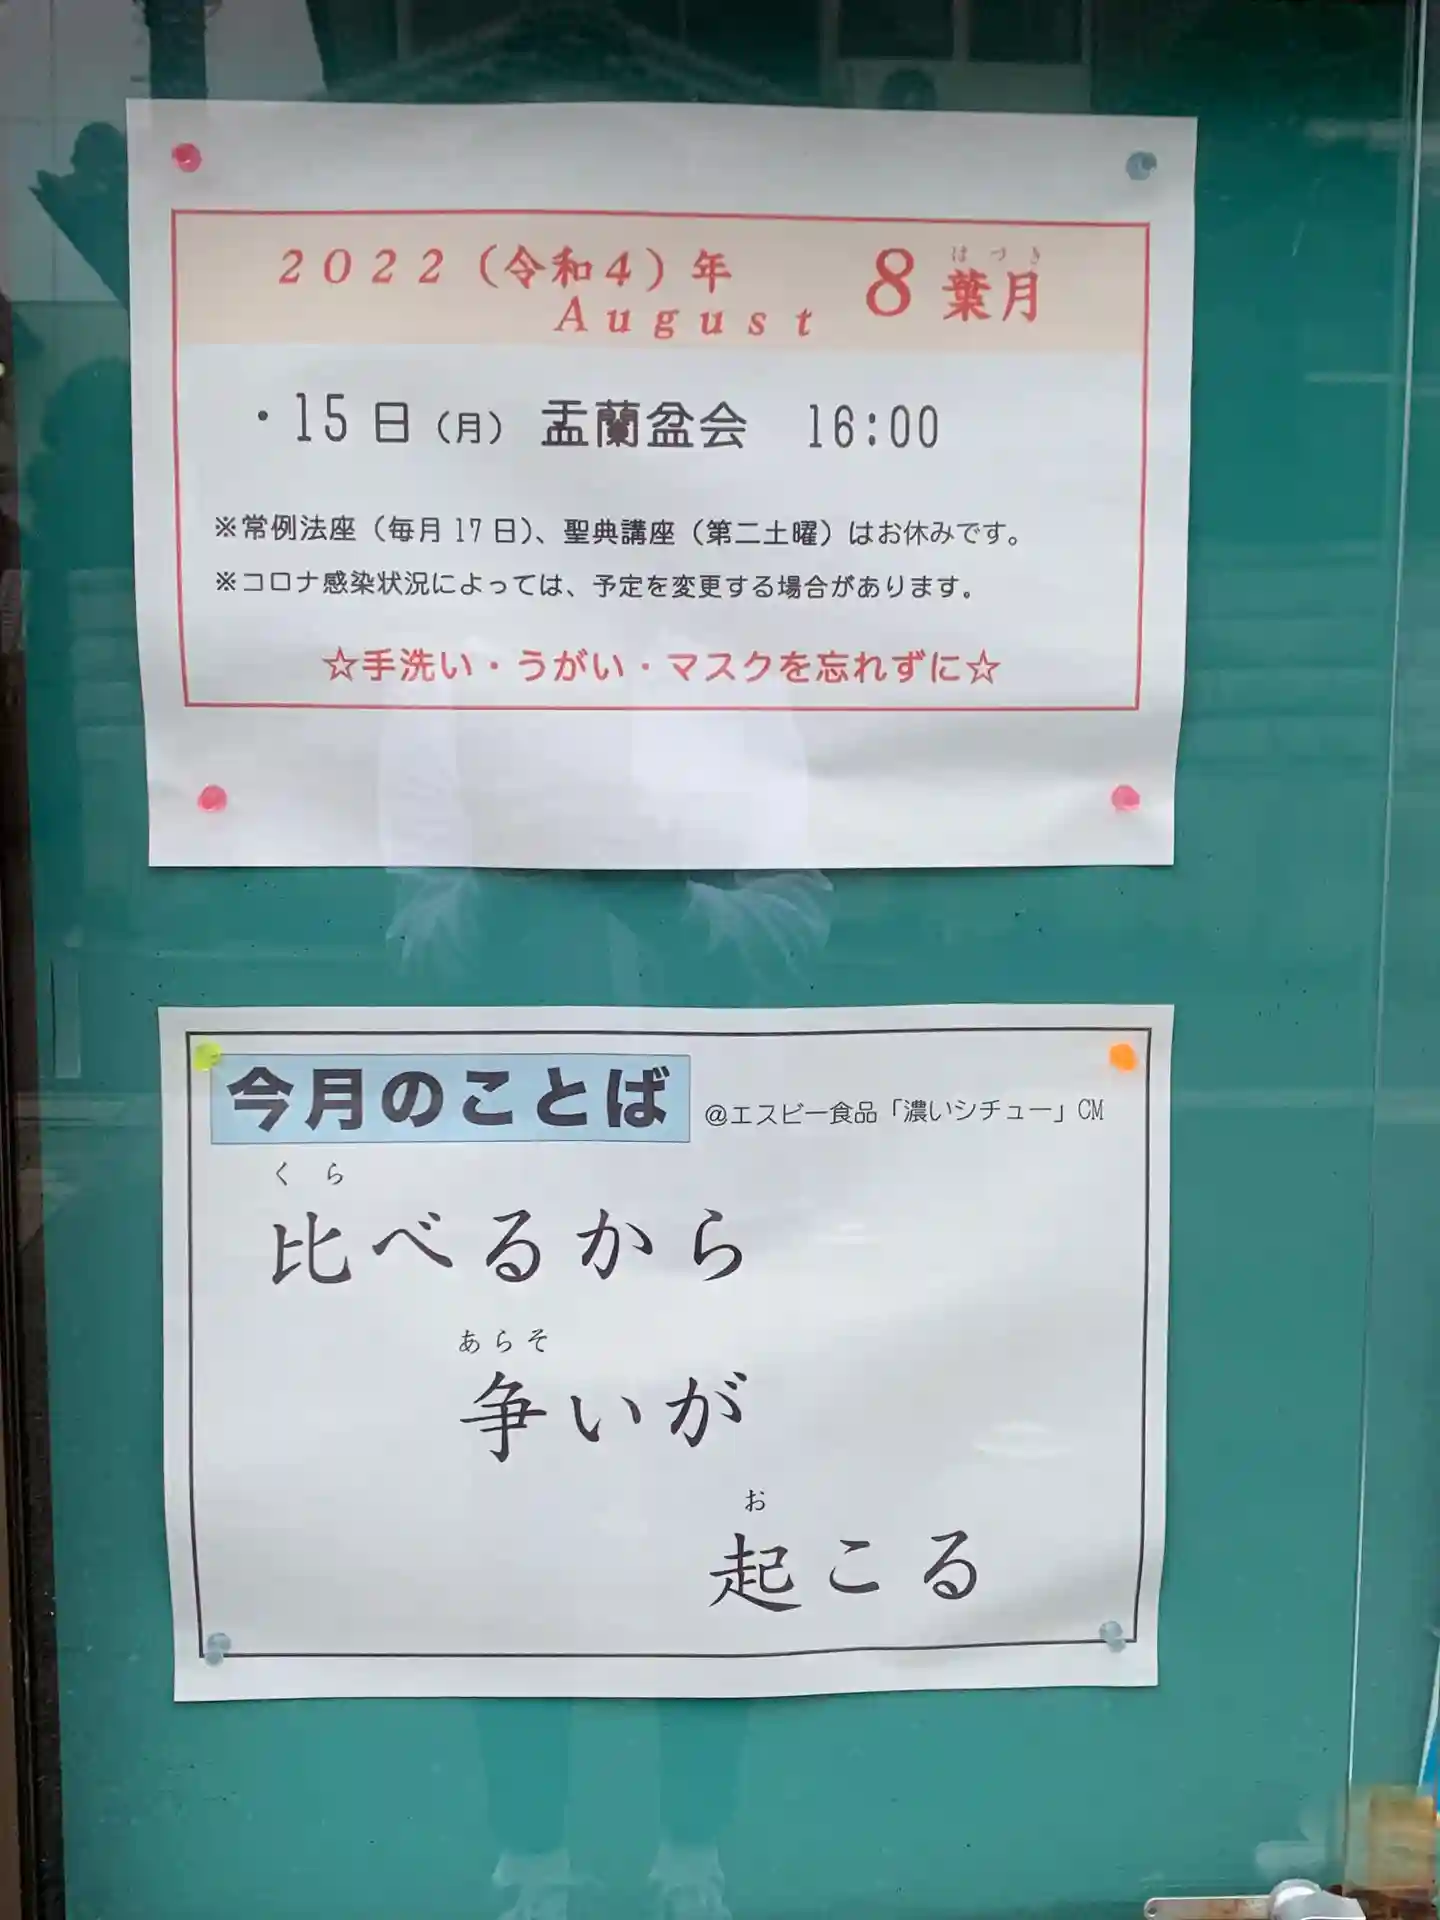 2022（令和4）年
August
8 葉月
はづき
・15日（月） 盂蘭盆会 16:00
※常例法座（毎月17日）、聖典講座（第二土曜）はお休みです。
※コロナ感染状況によっては、予定を変更する場合があります。
☆手洗い・うがい・マスクを忘れずに☆
今月のことば
@エスビー食品「濃いシチュー」CM
くら
比べるから
あらそ
争いが
お
起こる